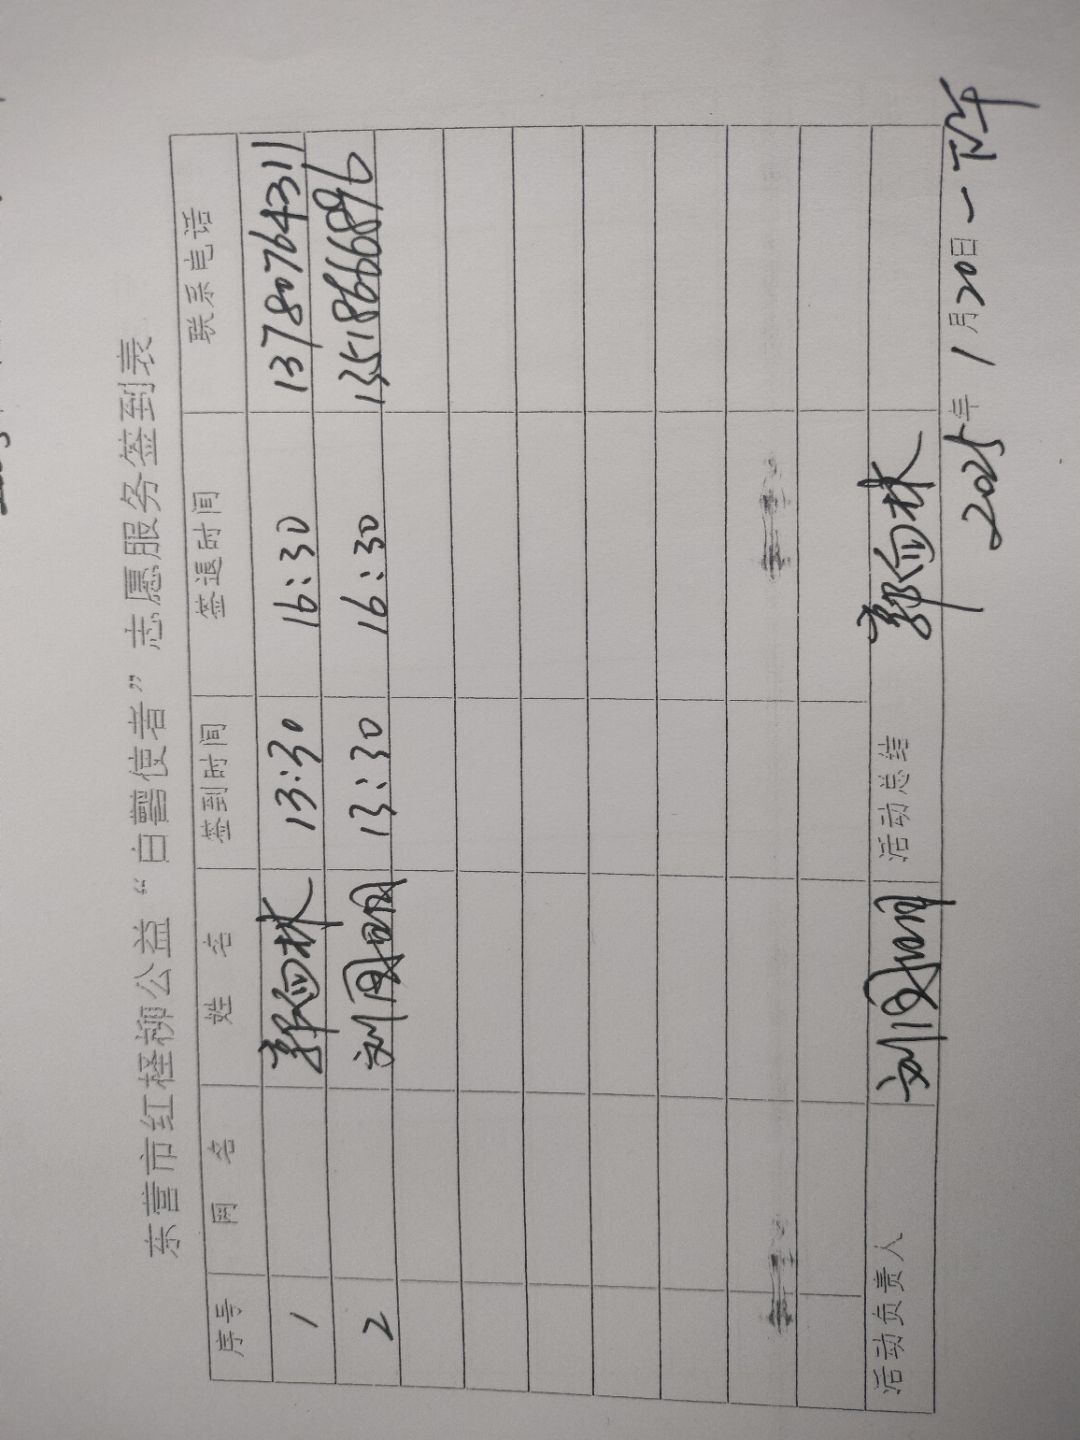 东营市红柽柳公益“白鹭使者”志愿服务签到表
序号 网 名 姓 名 签到时间 签退时间 联系电话
1 13:30 16:30 13780764311
2 刘国明 13:30 16:30 13518666896
活动负责人 刘国明 活动总结
2025年1月20日一下午